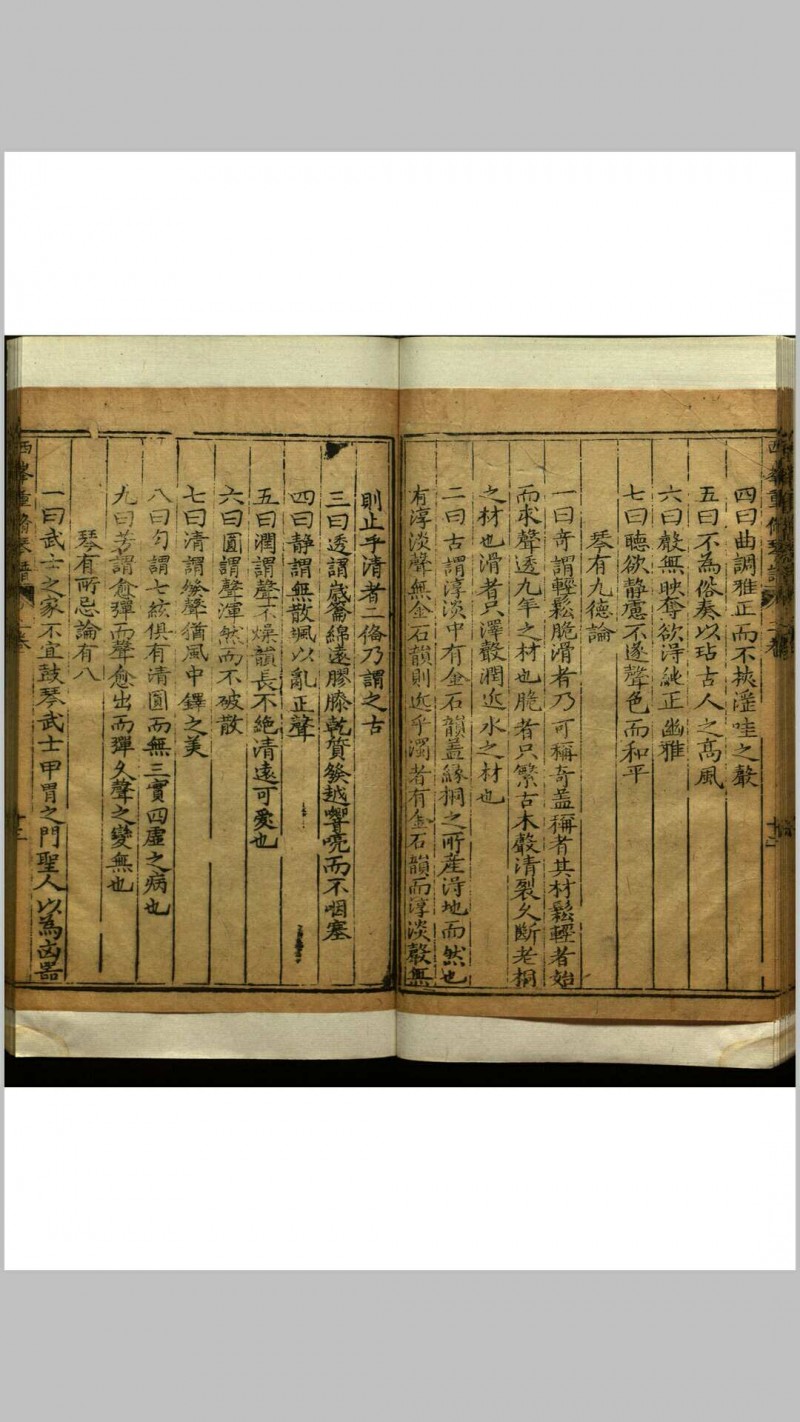 四曰曲調雅正而不挾滛哇之聲
五曰不為俗奏以玷古人之高風
六曰聲無映奪欲淂純正幽雅
七曰聽欲静慮不逐聲色而和平
琴有九德論
一曰奇謂輕鬆脆滑者乃可稱奇盖稱者其材鬆輕者始
而求聲透九年之材也脆者只繁古木聲清裂久斷老桐
之材也滑者只澤聲潤近水之材也
二曰古謂淳淡中有金石韻盖緣桐之所産淂地而然也
有淳淡聲無金石韻則近乎濁若有金石韻而淳淡聲無
則止乎清者二俻乃謂之古
三曰透謂嵗綿遠膠膝乾貿發越響亮而不咽塞
四曰静謂無散颯以亂正聲
五曰潤謂聲不燥韻長不絶清遠可愛也
六曰圓謂聲渾然而不破散
七曰清謂發聲猶風中鐸之美
八曰匀謂七絃俱有清圓而無三實四虛之病也
九曰芳謂愈彈而聲愈出而彈久聲之變無也
琴有所忌論有八
一曰武士之家不宜鼓琴武士甲胃之門聖人以為㐫噐